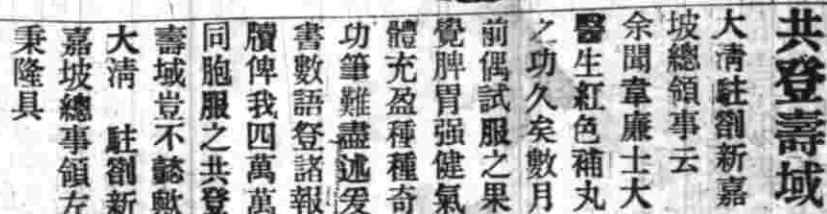 共登壽域
大清駐劄新嘉
坡總領事云
余聞韋廉士大
醫生紅色補丸
之功久矣數月
前偶試服之果
覺脾胃强健氣
體充盈種種奇
功筆難盡述爰
書數語登諸報
牘俾我四萬萬
同胞服之共登
壽域豈不懿歟
大淸 駐劄新
嘉坡總事領左
秉隆具